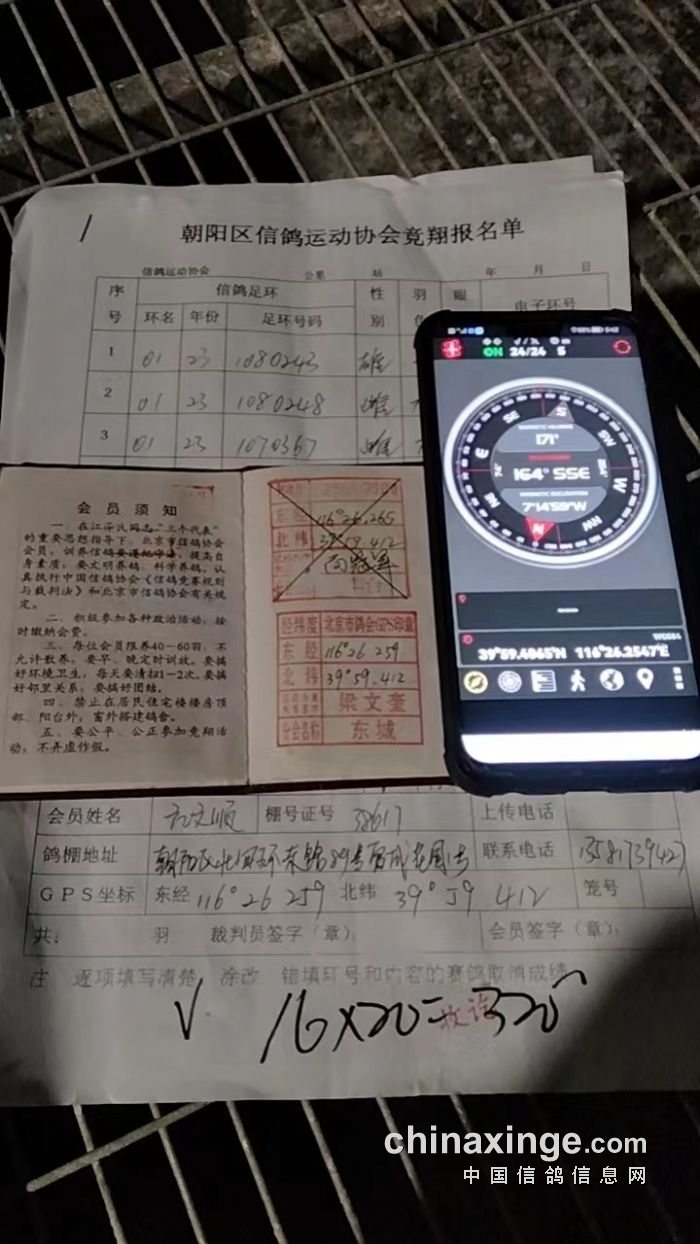 朝阳区信鸽运动协会竞翔报名单
信鸽运动协会 公里 站 年 月 日
序号 信鸽足环 性别 羽 眼 电子环号
环名 年份 足环号码
1 01 23 1080243 雄
2 01 23 1080248 雌
3 01 23 1070367 雌
会员须知
一、在江泽民同志“三个代表”
的重要思想指导下，北京市信鸽协会
会员，训养信鸽要遵纪守法，提高自
身素质，要文明养鸽，科学养鸽。认
真执行中国信鸽协会《信鸽竞赛规则
与裁判法》和北京市信鸽协会有关规
定。
二、积极参加各种政治活动，按
时缴纳会费。
三、每位会员限养40-60羽，不
允许散养，要早、晚定时训放。要搞
好环境卫生，每天要清扫1-2次。要搞
好邻里关系，要搞好团结。
四、禁止在居民住宅楼楼房顶
部、阳台外，窗外搭建鸽舍。
五、要公平、公正参加竞翔活
动，不弄虚作假。
东经 116°26.265
北纬 39°59.412
经纬度 北京市鸽会GPS印章
东经 116°26 259
北纬 39°59.412
梁文奎
分会名称 东城
ON 24/24 5
SE S SW
E W
NE N NW
MAGNETIC HEADING
171°
164° SSE
MAGNETIC DECLINATION
7°14'59"W
WGS84
39°59.4065'N 116°26.2547'E
会员姓名 文顺 棚号证号 38617 上传电话
鸽棚地址 联系电话 13581739427
GPS坐标 东经 116°26 259 北纬 39°59 412 笼号
共： 羽 裁判员签字（章）： 会员签字（章）：
注 逐项填写清楚，涂改、错填环号和内容的赛鸽取消成绩
√ 16×20=320
chinaxinge.com
中国信鸽信息网